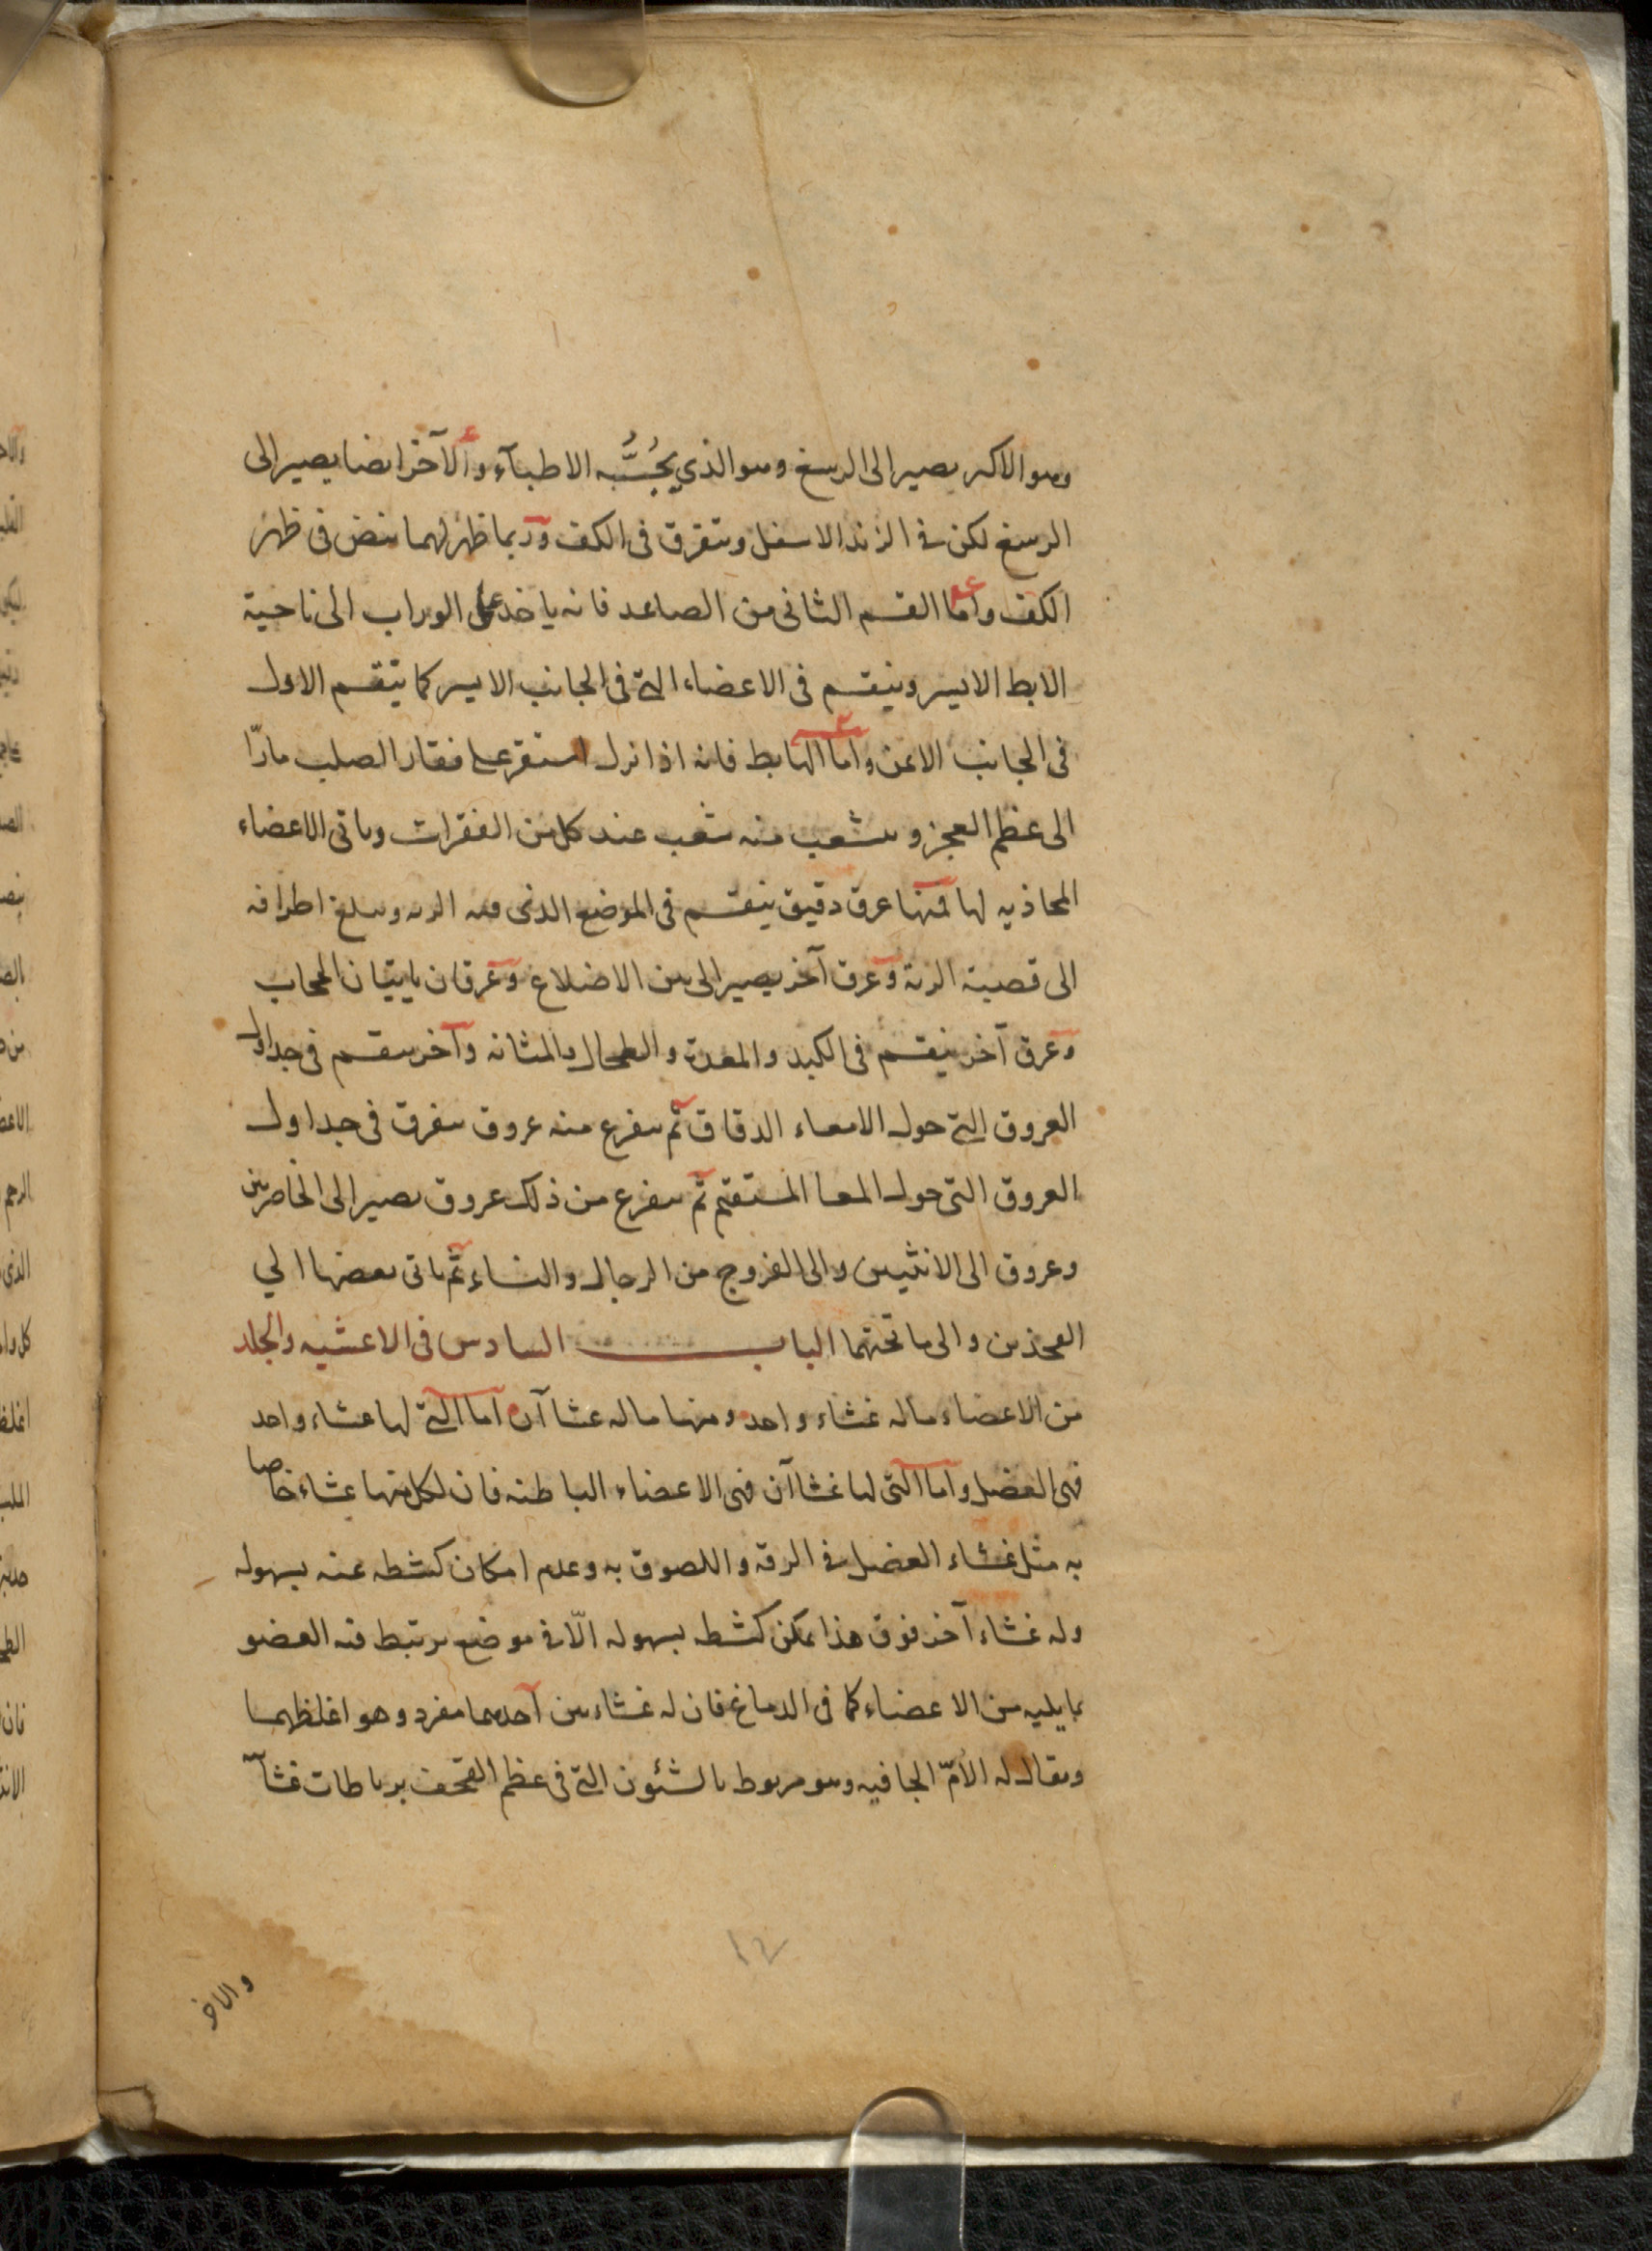 وهو الاكبر يصير الى الرسغ وهو الذي يَجُسُّه الاطبآء والآخر ايضا يصير الى
الرسغ لكن في الزند الاسفل ويتفرق في الكف وربما ظهر لهما نبض في ظهر
الكف واما القسم الثاني من الصاعد فانه ياخذ على الوراب الى ناحية
الابط الايسر وينقسم في الاعضاء التي في الجانب الايسر كما ينقسم الاول
في الجانب الايمن واما الهابط فانه اذا نزل استقر على فقار الصلب مارّا
الى عظم العجز ويتشعب منه شعب عند كل من الفقرات وياتي الاعضاء
المحاذيه لها فمنها عرق دقيق ينقسم في الموضع الذي فيه الريه ويبلغ اطرافه
الى قصبة الرية وعرق آخر يصير الى بين الاضلاع وعرقان ياتيان الحجاب
وعرق آخر ينقسم في الكبد والمعدة والطحال والمثانه وآخر ينقسم في جداول
العروق التي حول الامعاء الدقاق ثم يتفرع منه عروق يتفرق في جداول
العروق التي حول المعا المستقيم ثم يتفرع من ذلك عروق يصير الى الخاصرتين
وعروق الى الانثيين والى الفروج من الرجال والنساء ثم ياتي بعضها الي
الفخذين والى ما تحتهما الباب السادس في الاغشيه والجلد
من الاعضاء ماله غشاء واحد ومنها ماله غشاآن اما التي لها غشاء واحد
فهي العضل واما التي لها غشاآن فهي الاعضاء الباطنه فان لكل منها غشاء خاصا
به مثل غشاء العضل في الرقه واللصوق به وعدم امكان كشطه عنه بسهوله
وله غشاء آخر فوق هذا يمكن كشطه بسهوله الّا في موضع يرتبط فيه العضو
بما يليه من الاعضاء كما في الدماغ فان له غشاءين احدهما مفرد وهو اغلظهما
ويقال له الأمّ الجافيه وهو مربوط بالشئون التي في عظم القحف برباطات غشآ
والاخر
١٢